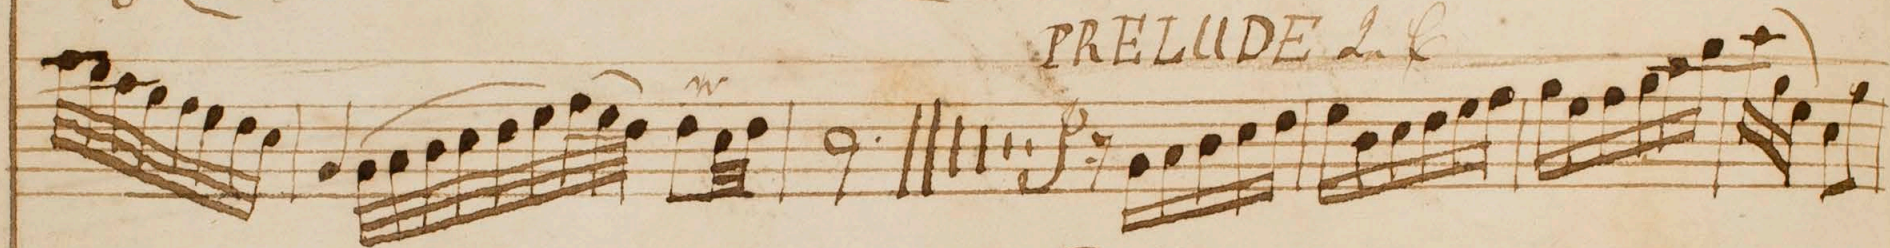 PRELUDE 2.